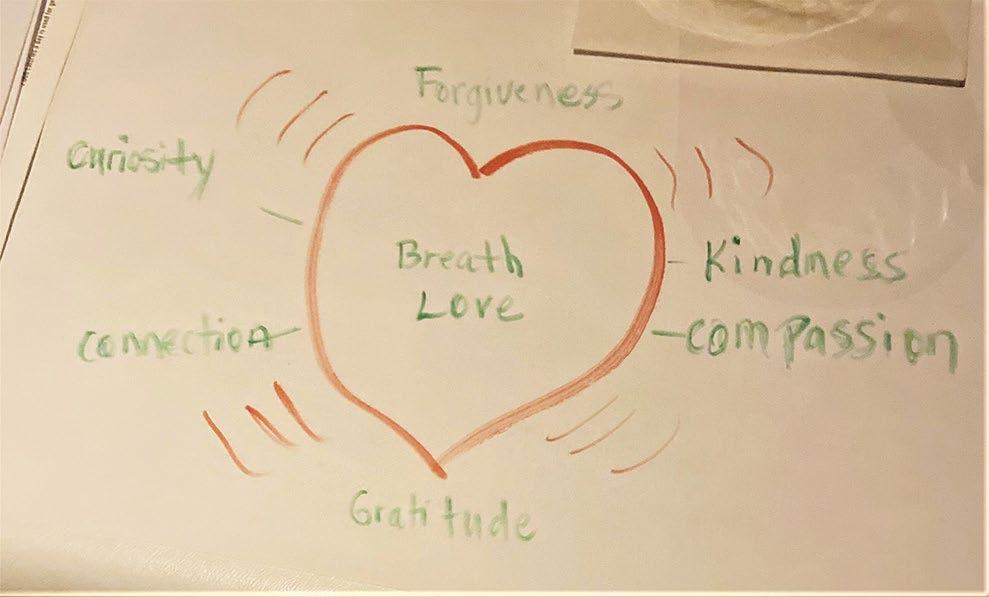 Forgiveness
Curiosity
Breath
Love
Kindness
Connection
Compassion
Gratitude